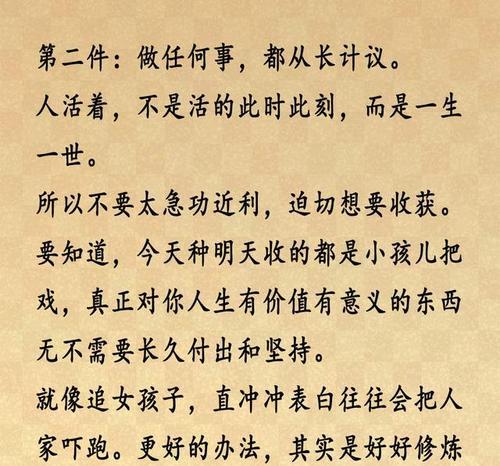 第二件：做任何事，都从长计议。
人活着，不是活的此时此刻，而是一生
一世。
所以不要太急功近利，迫切想要收获。
要知道，今天种明天收的都是小孩儿把
戏，真正对你人生有价值有意义的东西
无不需要长久付出和坚持。
就像追女孩子，直冲冲表白往往会把人
家吓跑。更好的办法，其实是好好修炼